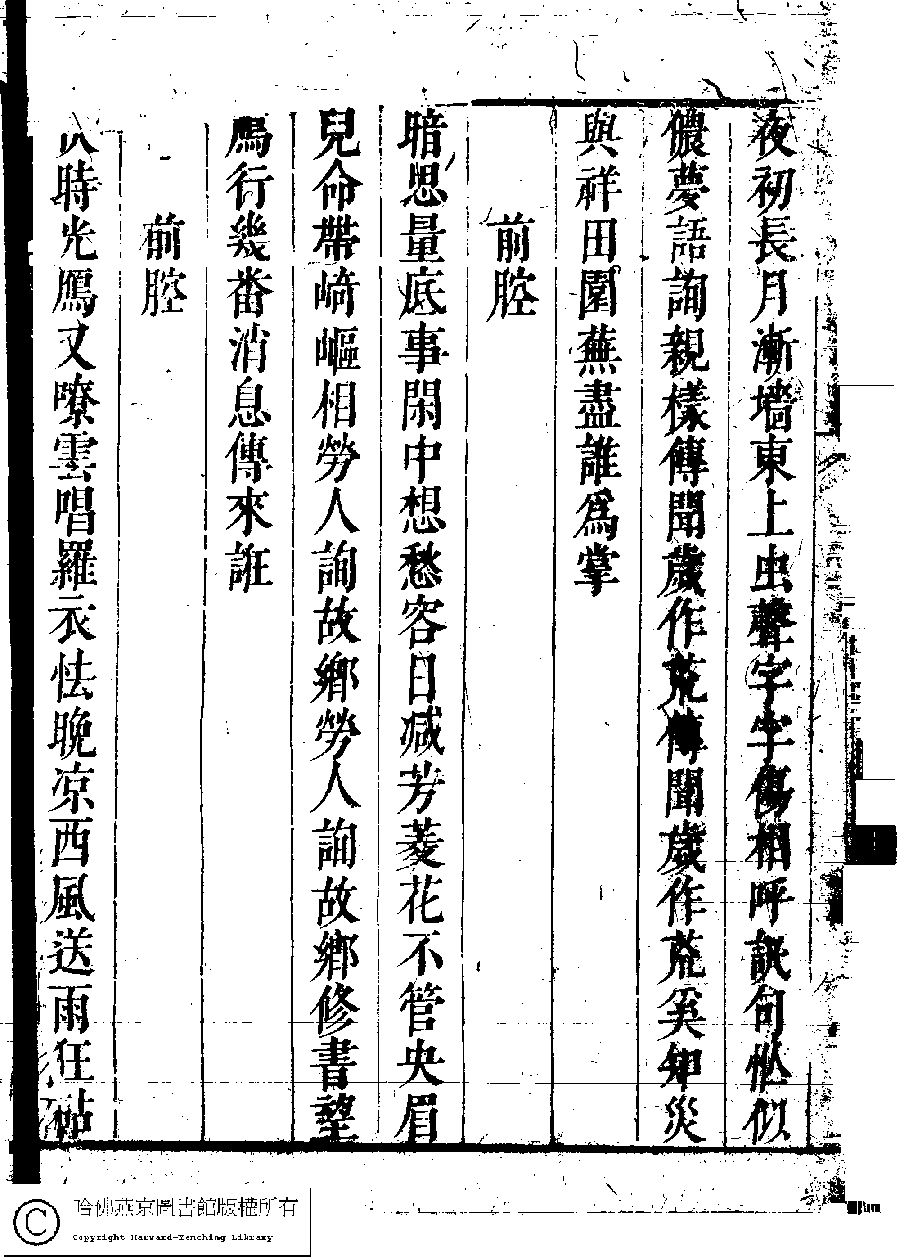 夜初長月漸墻東上虫聲字字傷相呼訴句恠似
儂夢語詢親樣傳聞歲作荒傳聞歲作荒奚知災
與祥田園蕪盡誰爲掌
前腔
暗思量底事閑中想愁容日減芳菱花不管央眉
兒命帶﨑嶇相勞人詢故鄉勞人詢故鄉修書望
鴈行幾畨消息傳來誑
前腔
時光鴈又嘹雲唱羅衣怯晚凉西風送雨狂帖
哈佛燕京圖書館版權所有
Copyright Harvard-Yenching Library